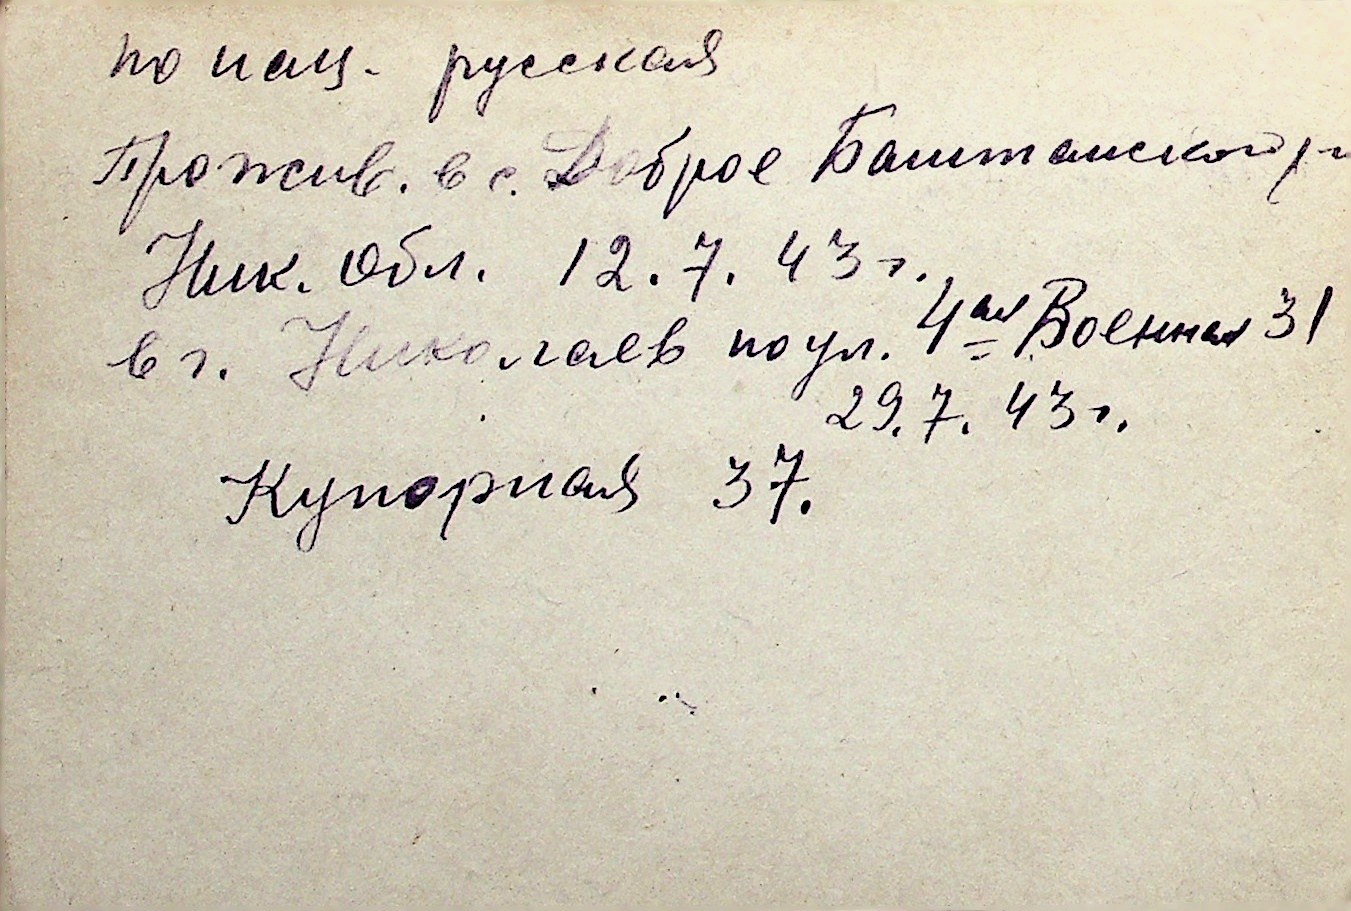 по нац. русская
Прожив. в с. Доброе Баштанского р-н
Ник. обл. 12.7.43г.
в г. Николаев по ул. 4ая Военная 31
29.7.43г.
Купорная 37.